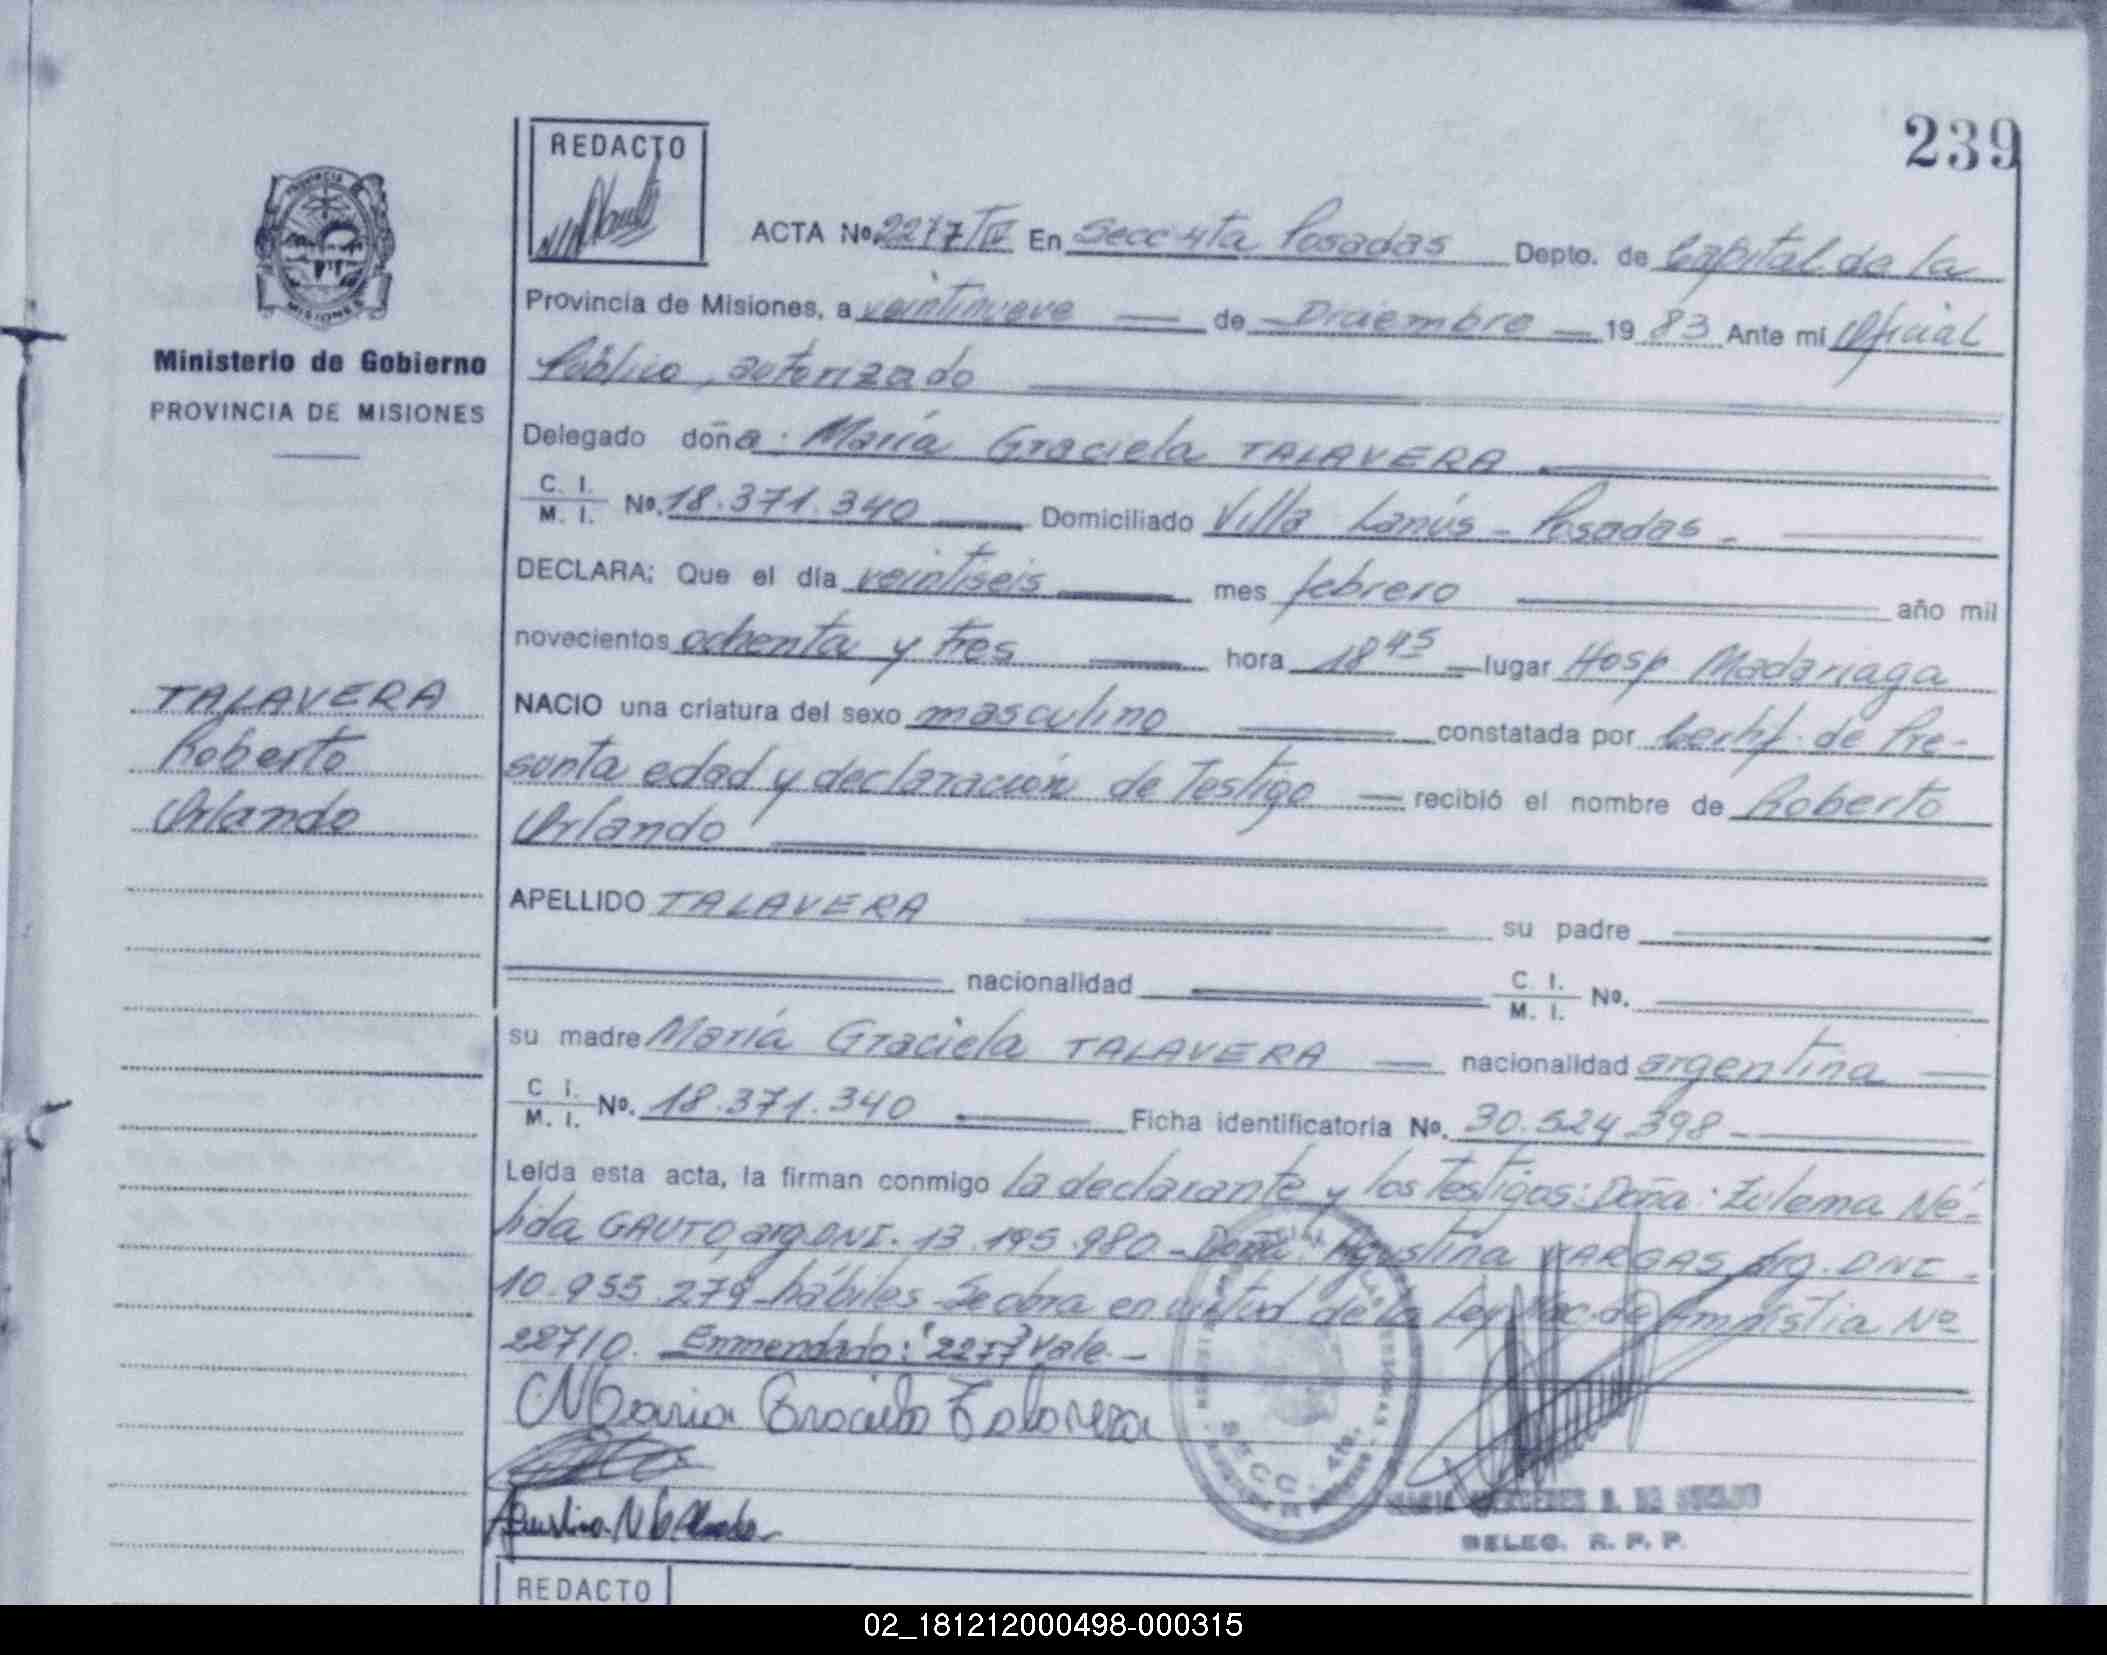 239
REDACTO
ACTA Nº 2277/IV En Secc 4ta Posadas Depto. de Capital de la
Provincia de Misiones, a veintinueve de Diciembre 19 83 Ante mi Oficial
Público, autorizado
Ministerio de Gobierno
PROVINCIA DE MISIONES
Delegado doña: María Graciela TALAVERA
C. I.
M. I. Nº. 18.371.340 Domiciliado Villa Lanús - Posadas -
DECLARA: Que el día veintiseis mes febrero año mil
novecientos ochenta y tres hora 18 45 lugar Hosp Madariaga
TALAVERA
Roberto
Orlando
NACIO una criatura del sexo masculino constatada por Certif. de Pre-
sunta edad y declaración de Testigo recibió el nombre de Roberto
Orlando
APELLIDO TALAVERA su padre
nacionalidad C. I.
M. I. Nº.
su madre María Graciela TALAVERA nacionalidad argentina
C I.
M. I. Nº. 18.371.340 Ficha identificatoria Nº. 30.524.398 -
Leída esta acta, la firman conmigo la declarante y los Testigos: Doña: Zulema Né-
lida GAUTO, arg. DNI. 13.195.980 - Doña: Agustina VARGAS, Arg. DNI -
10.955.279 - hábiles - Se obra en virtud de la Ley Nac. de Amnistia Nº
22710. Enmendado: "2277" Vale. -
Maria Graciela Talavera
SECC. 4ta.
DELEG. R. P. P.
REDACTO
02_181212000498-000315